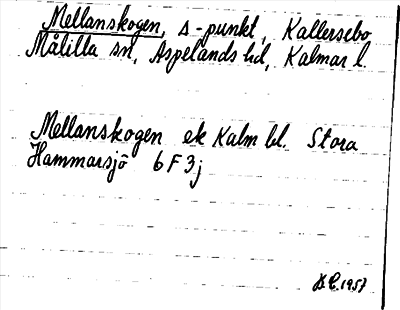 Mellanskogen, s-punkt, Kallersebo
Målilla sn, Aspelands hd, Kalmar l.
Mellanskogen ek Kalm bl. Stora
Hammarsjö 6F3j
1957